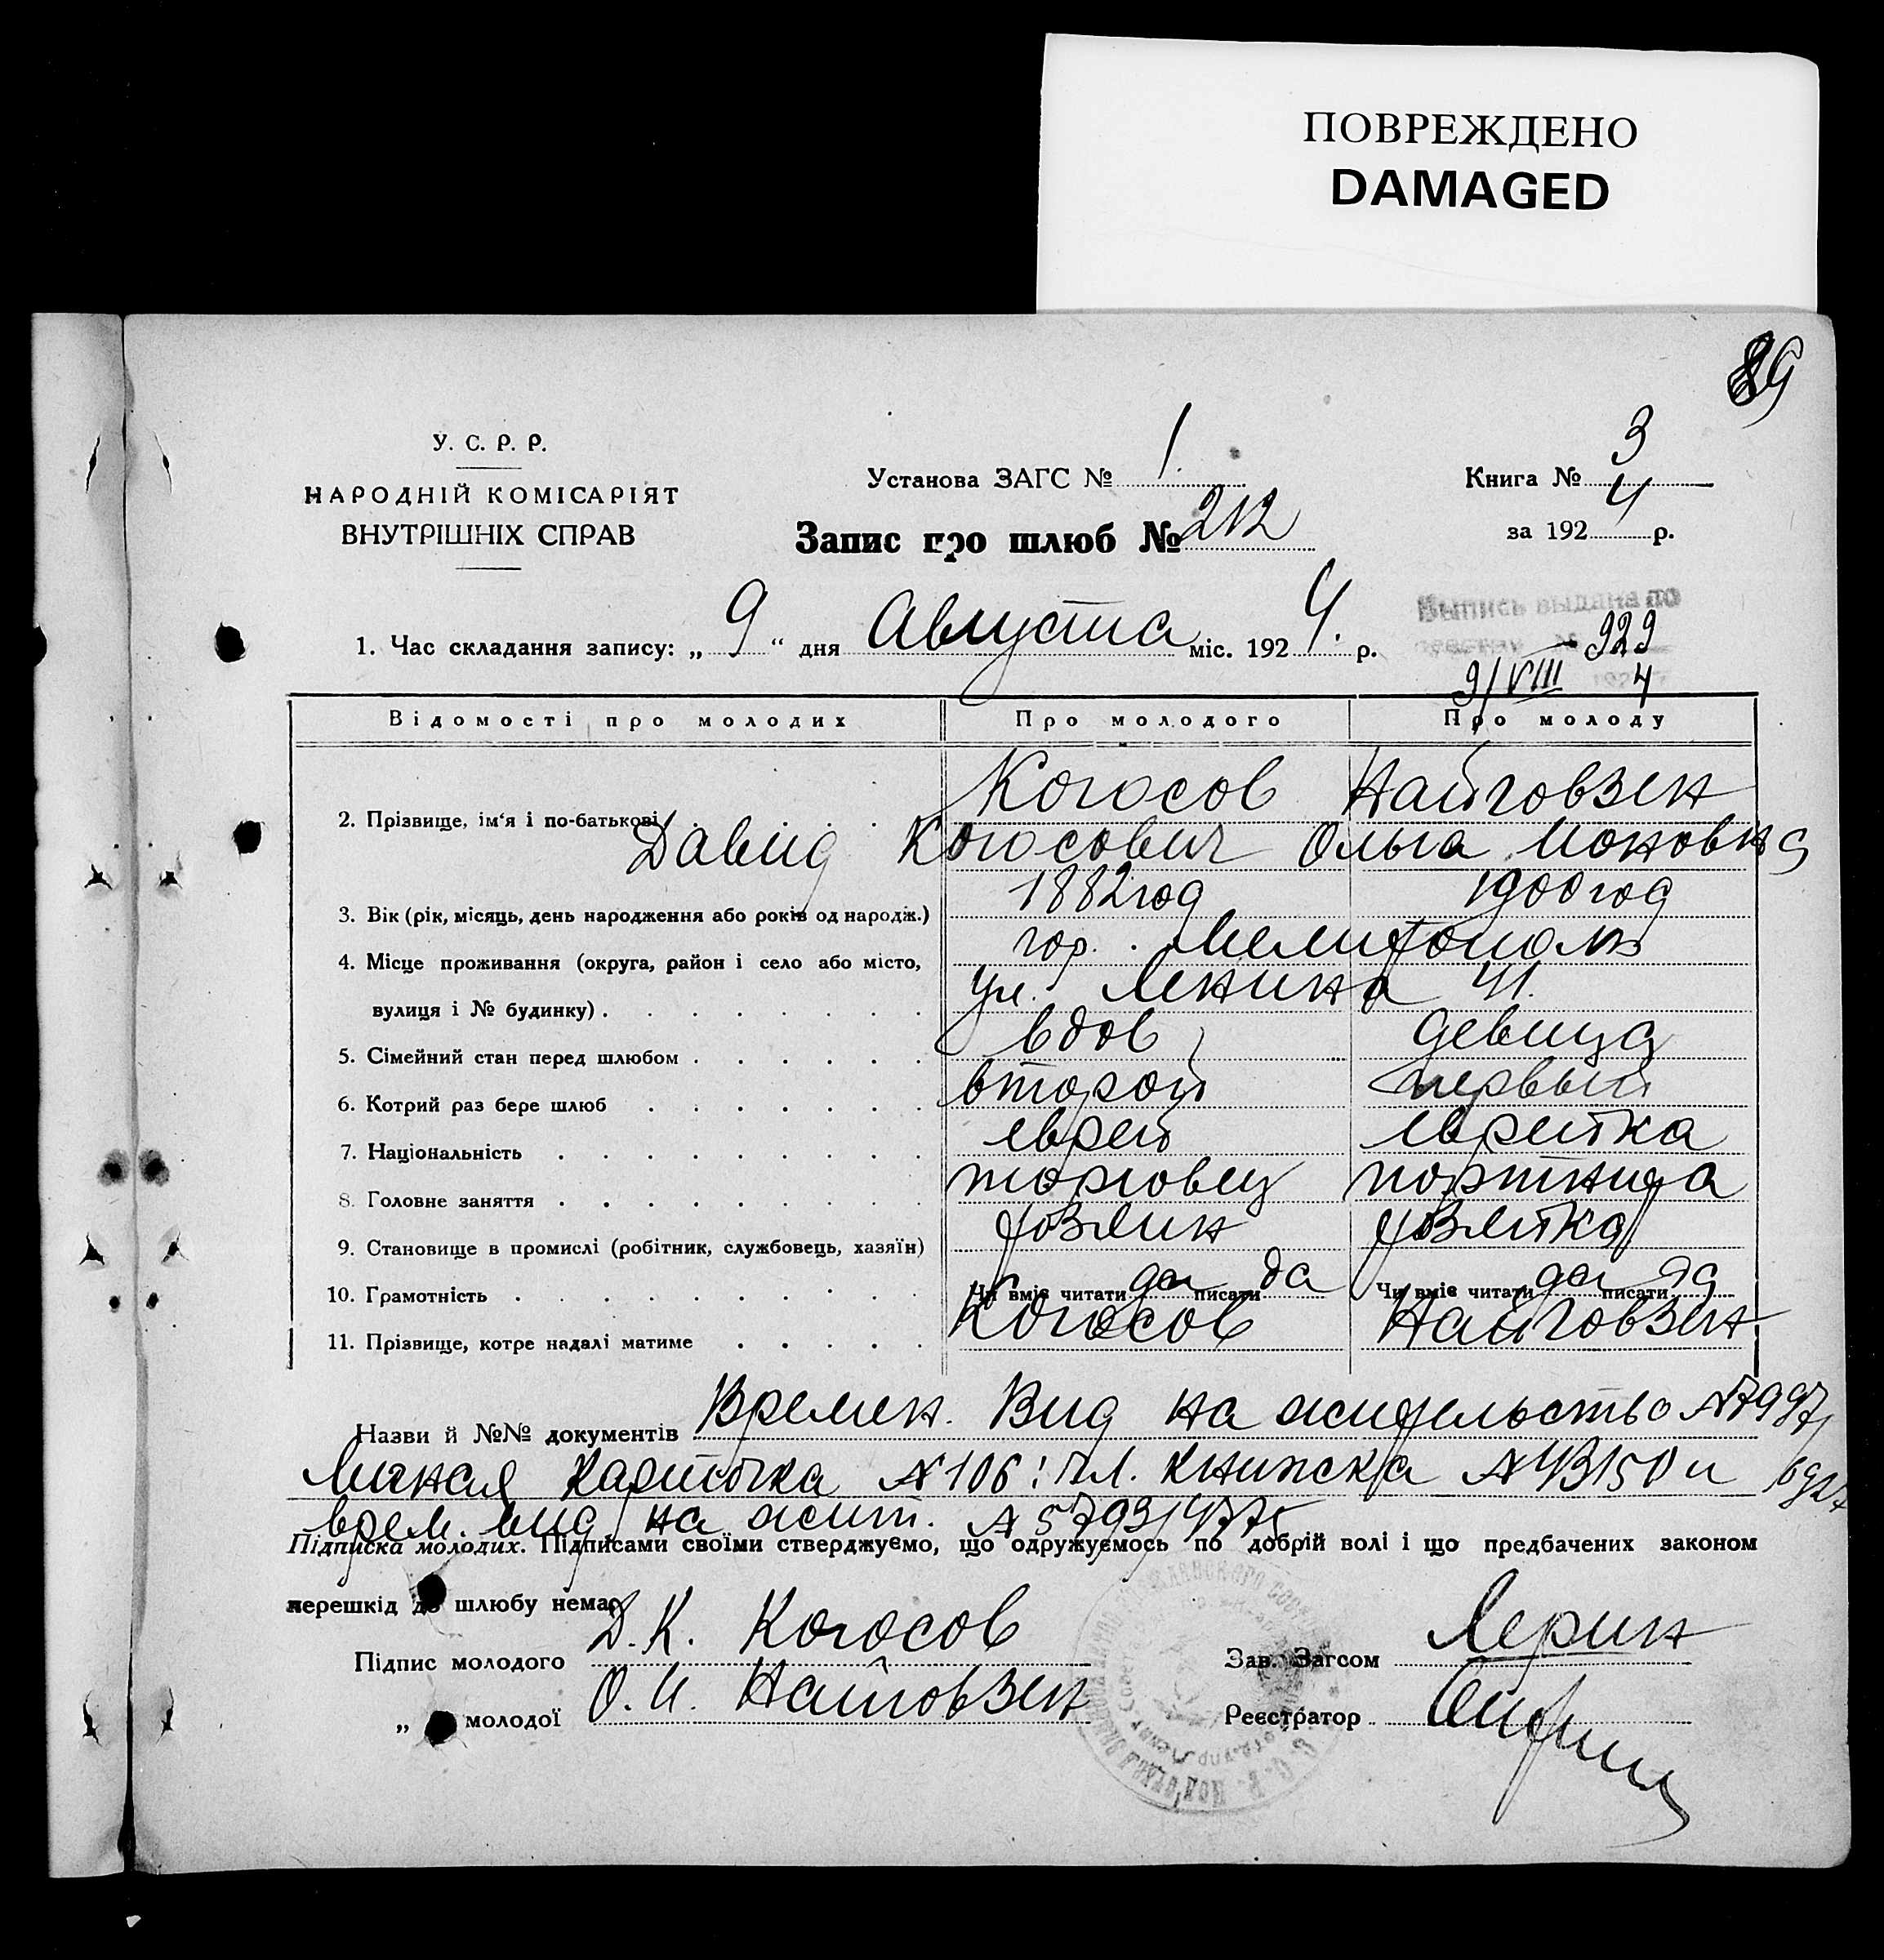 ПОВРЕЖДЕНО
DAMAGED
89
У. С. Р. Р.
НАРОДНІЙ КОМІСАРІЯТ
ВНУТРІШНІХ СПРАВ
Установа ЗАГС № 1.
Запис про шлюб № 212
Книга № 3
за 1924 р.
1. Час складання запису: „ 9 “ дня Августа міс. 1924. р.
Выпись выдана по
реестру № 929
9/VIII 1924
Відомості про молодих Про молодого Про молоду
Когосов Найговзен
2. Прізвище, ім'я і по-батькові
Давид Когосович Ольга Ионовна
3. Вік (рік, місяць, день народження або років од народж.) 1882 год 1900 год
4. Місце проживання (округа, район і село або місто, гор. Мелитополь
вулиця і № будинку) ул. Ленина 41.
5. Сімейний стан перед шлюбом вдов девица
6. Котрий раз бере шлюб второй первый
7. Національність еврей еврейка
8. Головне заняття торговец портниха
9. Становище в промислі (робітник, службовець, хазяїн) хозяин хозяйка
10. Грамотність Чи вміє читати да писати да Чи вміє читати да писати да
11. Прізвище, котре надалі матиме Когосов Найговзен
Назви й №№ документів Времен. Вид на жительство №7997/
Личная карточка №106: чл. книжка №43150 и
врем. вид на жит. №5793/4775
Підписка молодих. Підписами своїми стверджуємо, що одружуємось по добрій волі і що предбачених законом
перешкід до шлюбу нема.
Підпис молодого Д. К. Когосов
„ молодої О. И. Найговзен
Зав. Загсом Лерин
Реєстратор